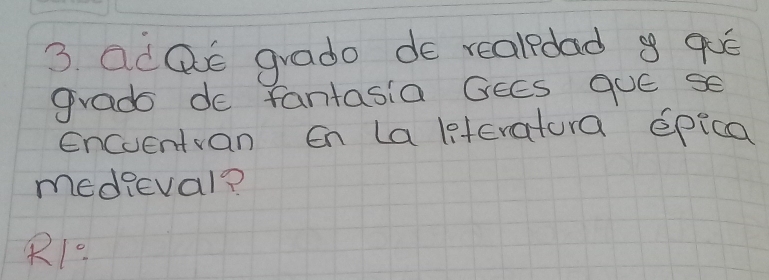 3. a¿Qué grado de realidad y qué
grado de fantasía Gees que se
encuentran en la literatura épica
medieval?
R/: